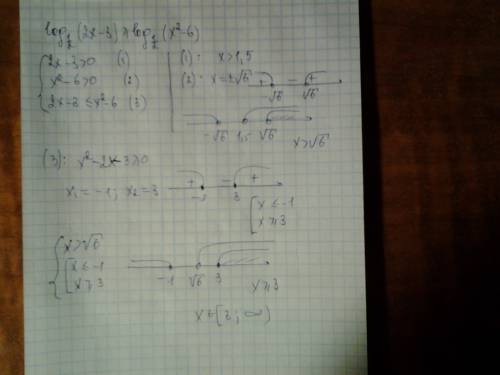 log½(2x-3) ≥ log½(x²-6)
{ 2x-3>0 (1)
x²-6>0 (2)
2x-3 ≤ x²-6 (3)
(1): x>1,5
(2): x=±√6 + − +
-√6 √6
-√6 1,5 √6
x>√6
(3): x²-2x-3≥0
x₁=-1; x₂=3
+ − +
-1 3
[ x ≤ -1
x ≥ 3
{ x>√6
[ x ≤ -1
x ≥ 3
-1 √6 3
x ≥ 3
x ∈ [3; ∞)